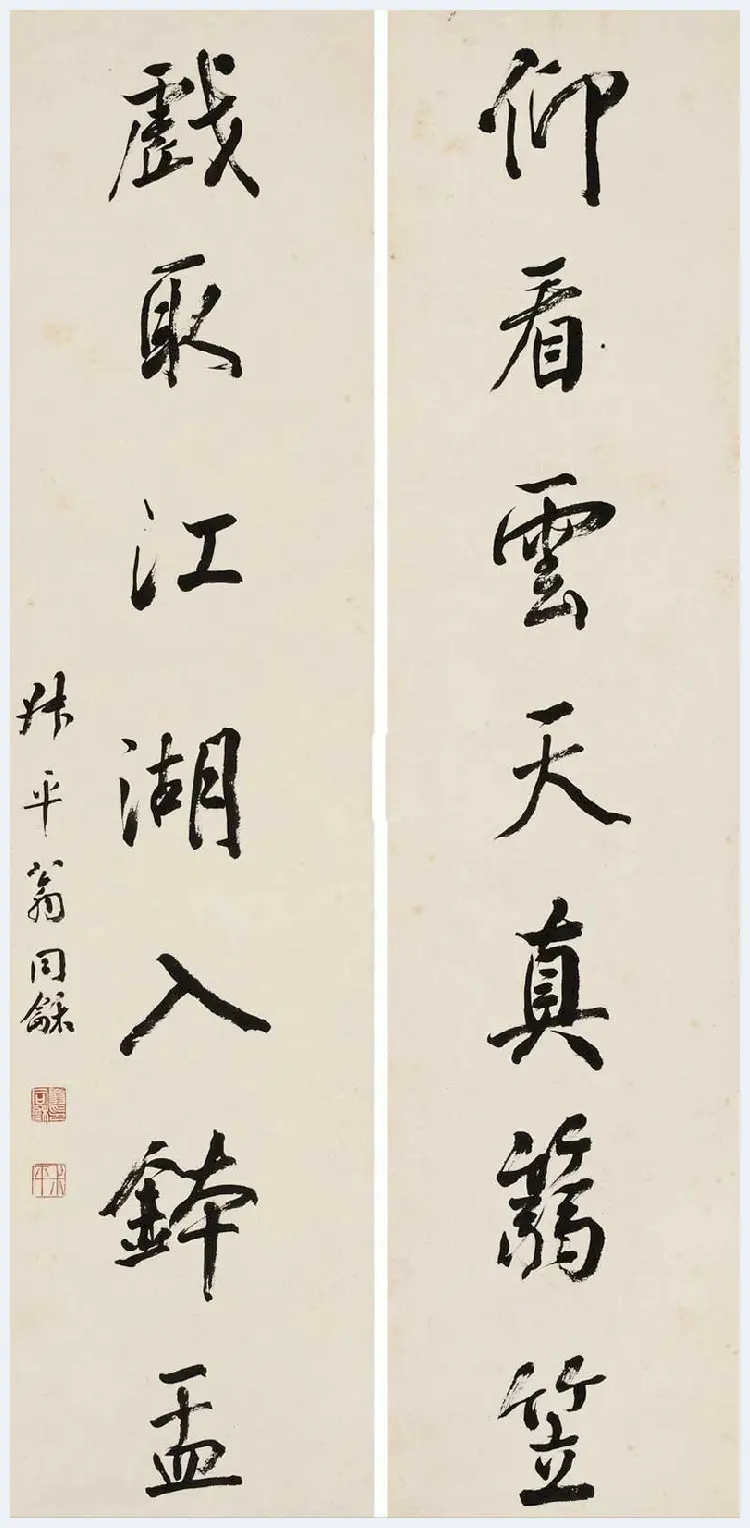 仰看雲天真篛笠
戲取江湖入鉢盂
叔平翁同龢